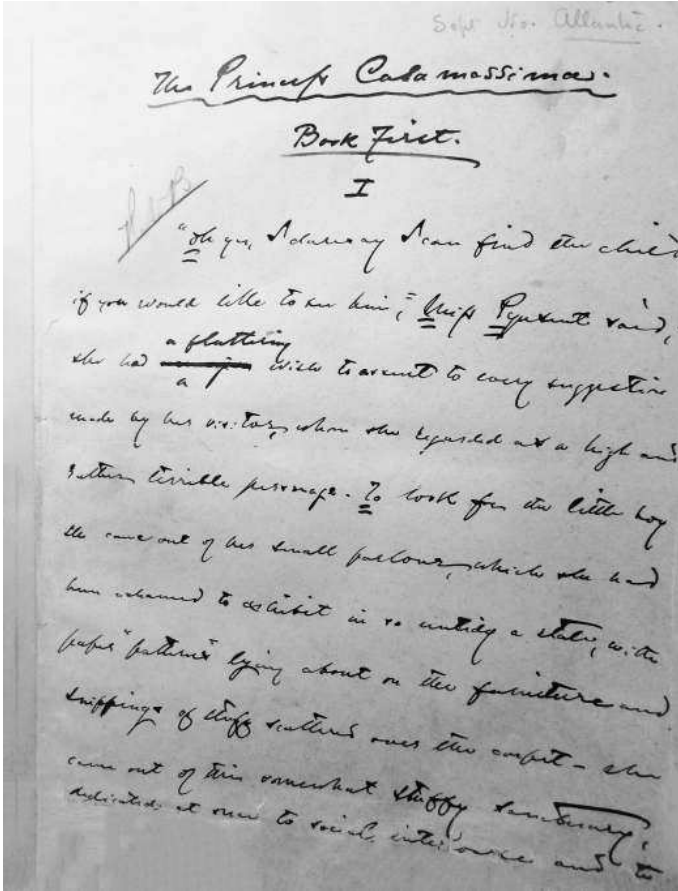 Sept No. Atlantic.
The Princess Casamassima.
Book First.
I
"Oh yes, I daresay I can find the child
if you would like to see him," Miss Pynsent said;
a fluttering
she had wish to assent to every suggestion
made by her visitor, whom she regarded as a high and
rather terrible personage. To look for the little boy
she came out of her small parlour, which she had
been ashamed to exhibit in so untidy a state, with
paper "patterns" lying about on the furniture and
snippings of stuff scattered over the carpet – she
came out of this somewhat stuffy sanctuary,
dedicated at once to social intercourse and to